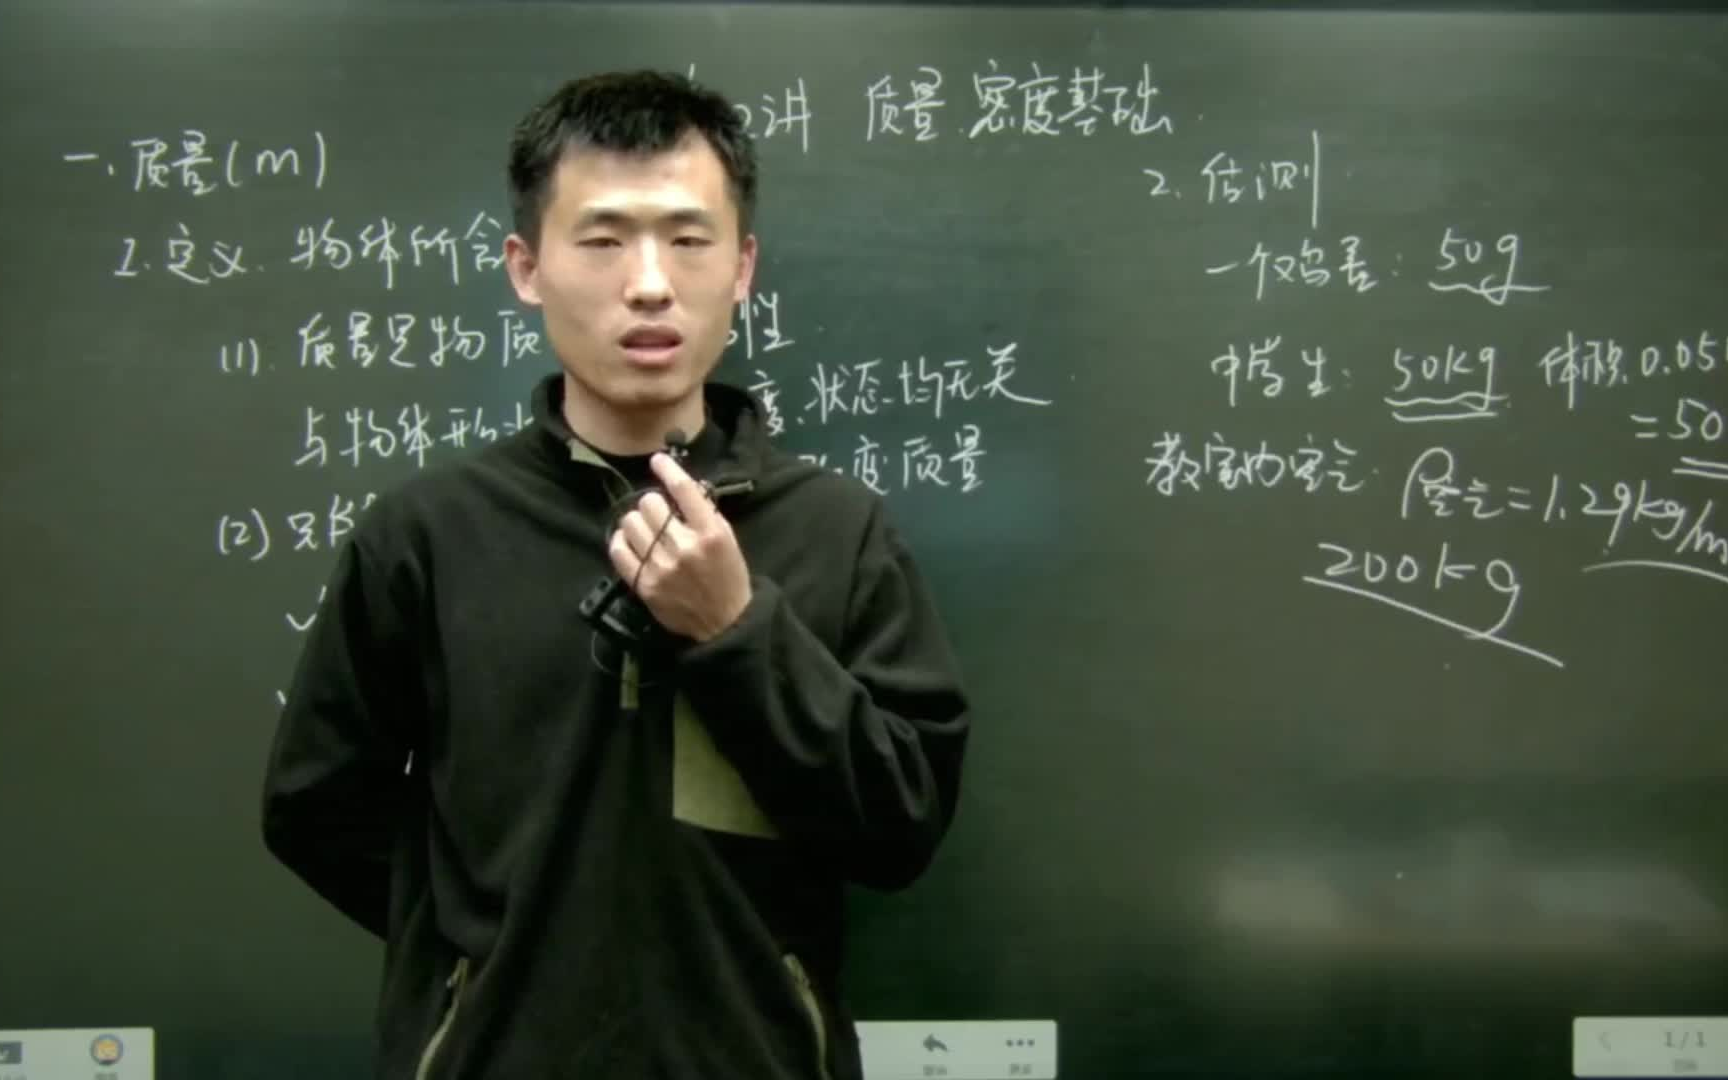 讲 质量、密度基础
一、质量(m)
1. 定义. 物体所含
(1). 质量是物质 性
与物体形状 度、状态、均无关
变质量
(2) 只
2. 估测
一个鸡蛋: 50g
中学生: 50kg 体积 0.05
=50
教室内空气: ρ空气=1.29kg/m
200kg
1/1